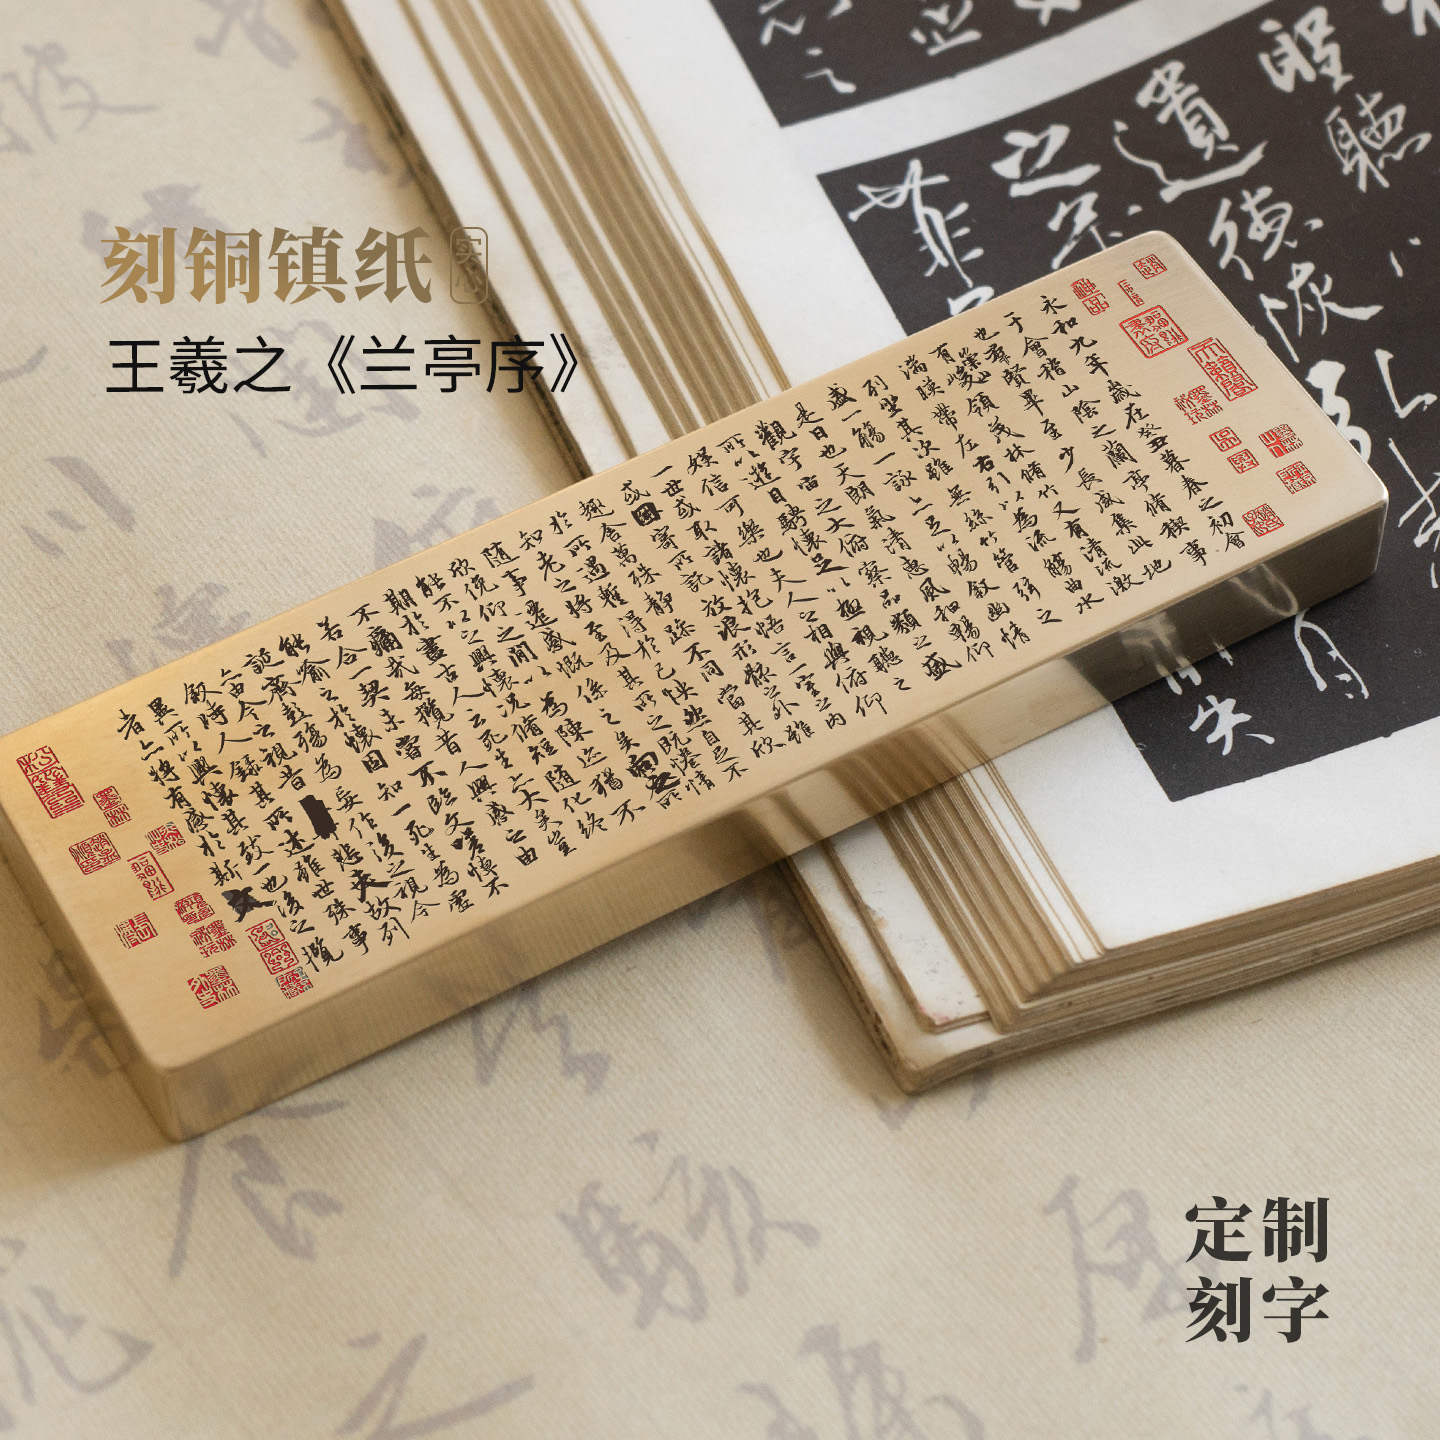 刻铜镇纸
实心
王羲之《兰亭序》
永和九年歲在癸丑暮春之初會
于會稽山陰之蘭亭脩稧事
也群賢畢至少長咸集此地
有崇山峻領茂林脩竹又有清流激
湍暎帶左右引以為流觴曲水
列坐其次雖無絲竹管弦之
盛一觴一詠亦足以暢敘幽情
是日也天朗氣清惠風和暢仰
觀宇宙之大俯察品類之盛
所以遊目騁懷足以極視聽之
娛信可樂也夫人之相與俯仰
一世或取諸懷抱悟言一室之內
或因寄所託放浪形骸之外雖
趣舍萬殊靜躁不同當其欣
於所遇蹔得於己怏然自足不
知老之將至及其所之既惓情
隨事遷感慨係之矣向之所
欣俛仰之閒以為陳迹猶不
能不以之興懷況脩短隨化終
期於盡古人云死生亦大矣豈
不痛哉每攬昔人興感之由
若合一契未嘗不臨文嗟悼不
能喻之於懷固知一死生為虛
誕齊彭殤為妄作後之視今
亦由今之視昔悲夫故列
敘時人錄其所述雖世殊事
異所以興懷其致一也後之攬
者亦將有感於斯文
定制
刻字